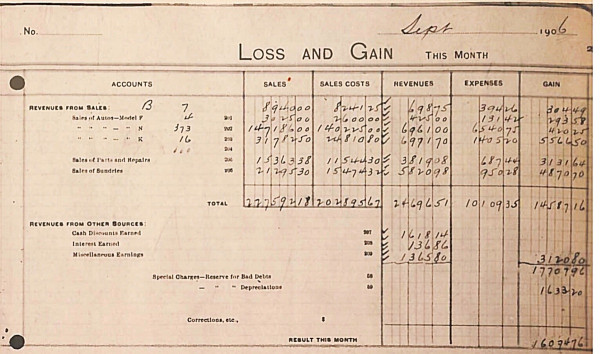 No. Sept 1906
LOSS AND GAIN THIS MONTH
ACCOUNTS SALES SALES COSTS REVENUES EXPENSES GAIN
REVENUES FROM SALES: B 7 894000 824125 69875 39426 30449
Sales of Autos—Model F 4 302500 260000 42500 13142 29358
" " " — " N 373 14718600 14022500 696100 654075 42025
" " " — " K 16 3178250 2481080 697170 140520 556650
Sales of Parts and Repairs 1536338 1154430 381908 68744 313164
Sales of Sundries 2129530 1547432 582098 95028 487070
TOTAL 22759218 20289567 2469651 1010935 1458716
REVENUES FROM OTHER SOURCES:
Cash Discounts Earned 161814
Interest Earned 13686
Miscellaneous Earnings 136580 312080
1770796
Special Charges—Reserve for Bad Debts
— " " Depreciations 163320
Corrections, etc.,
RESULT THIS MONTH 1607476